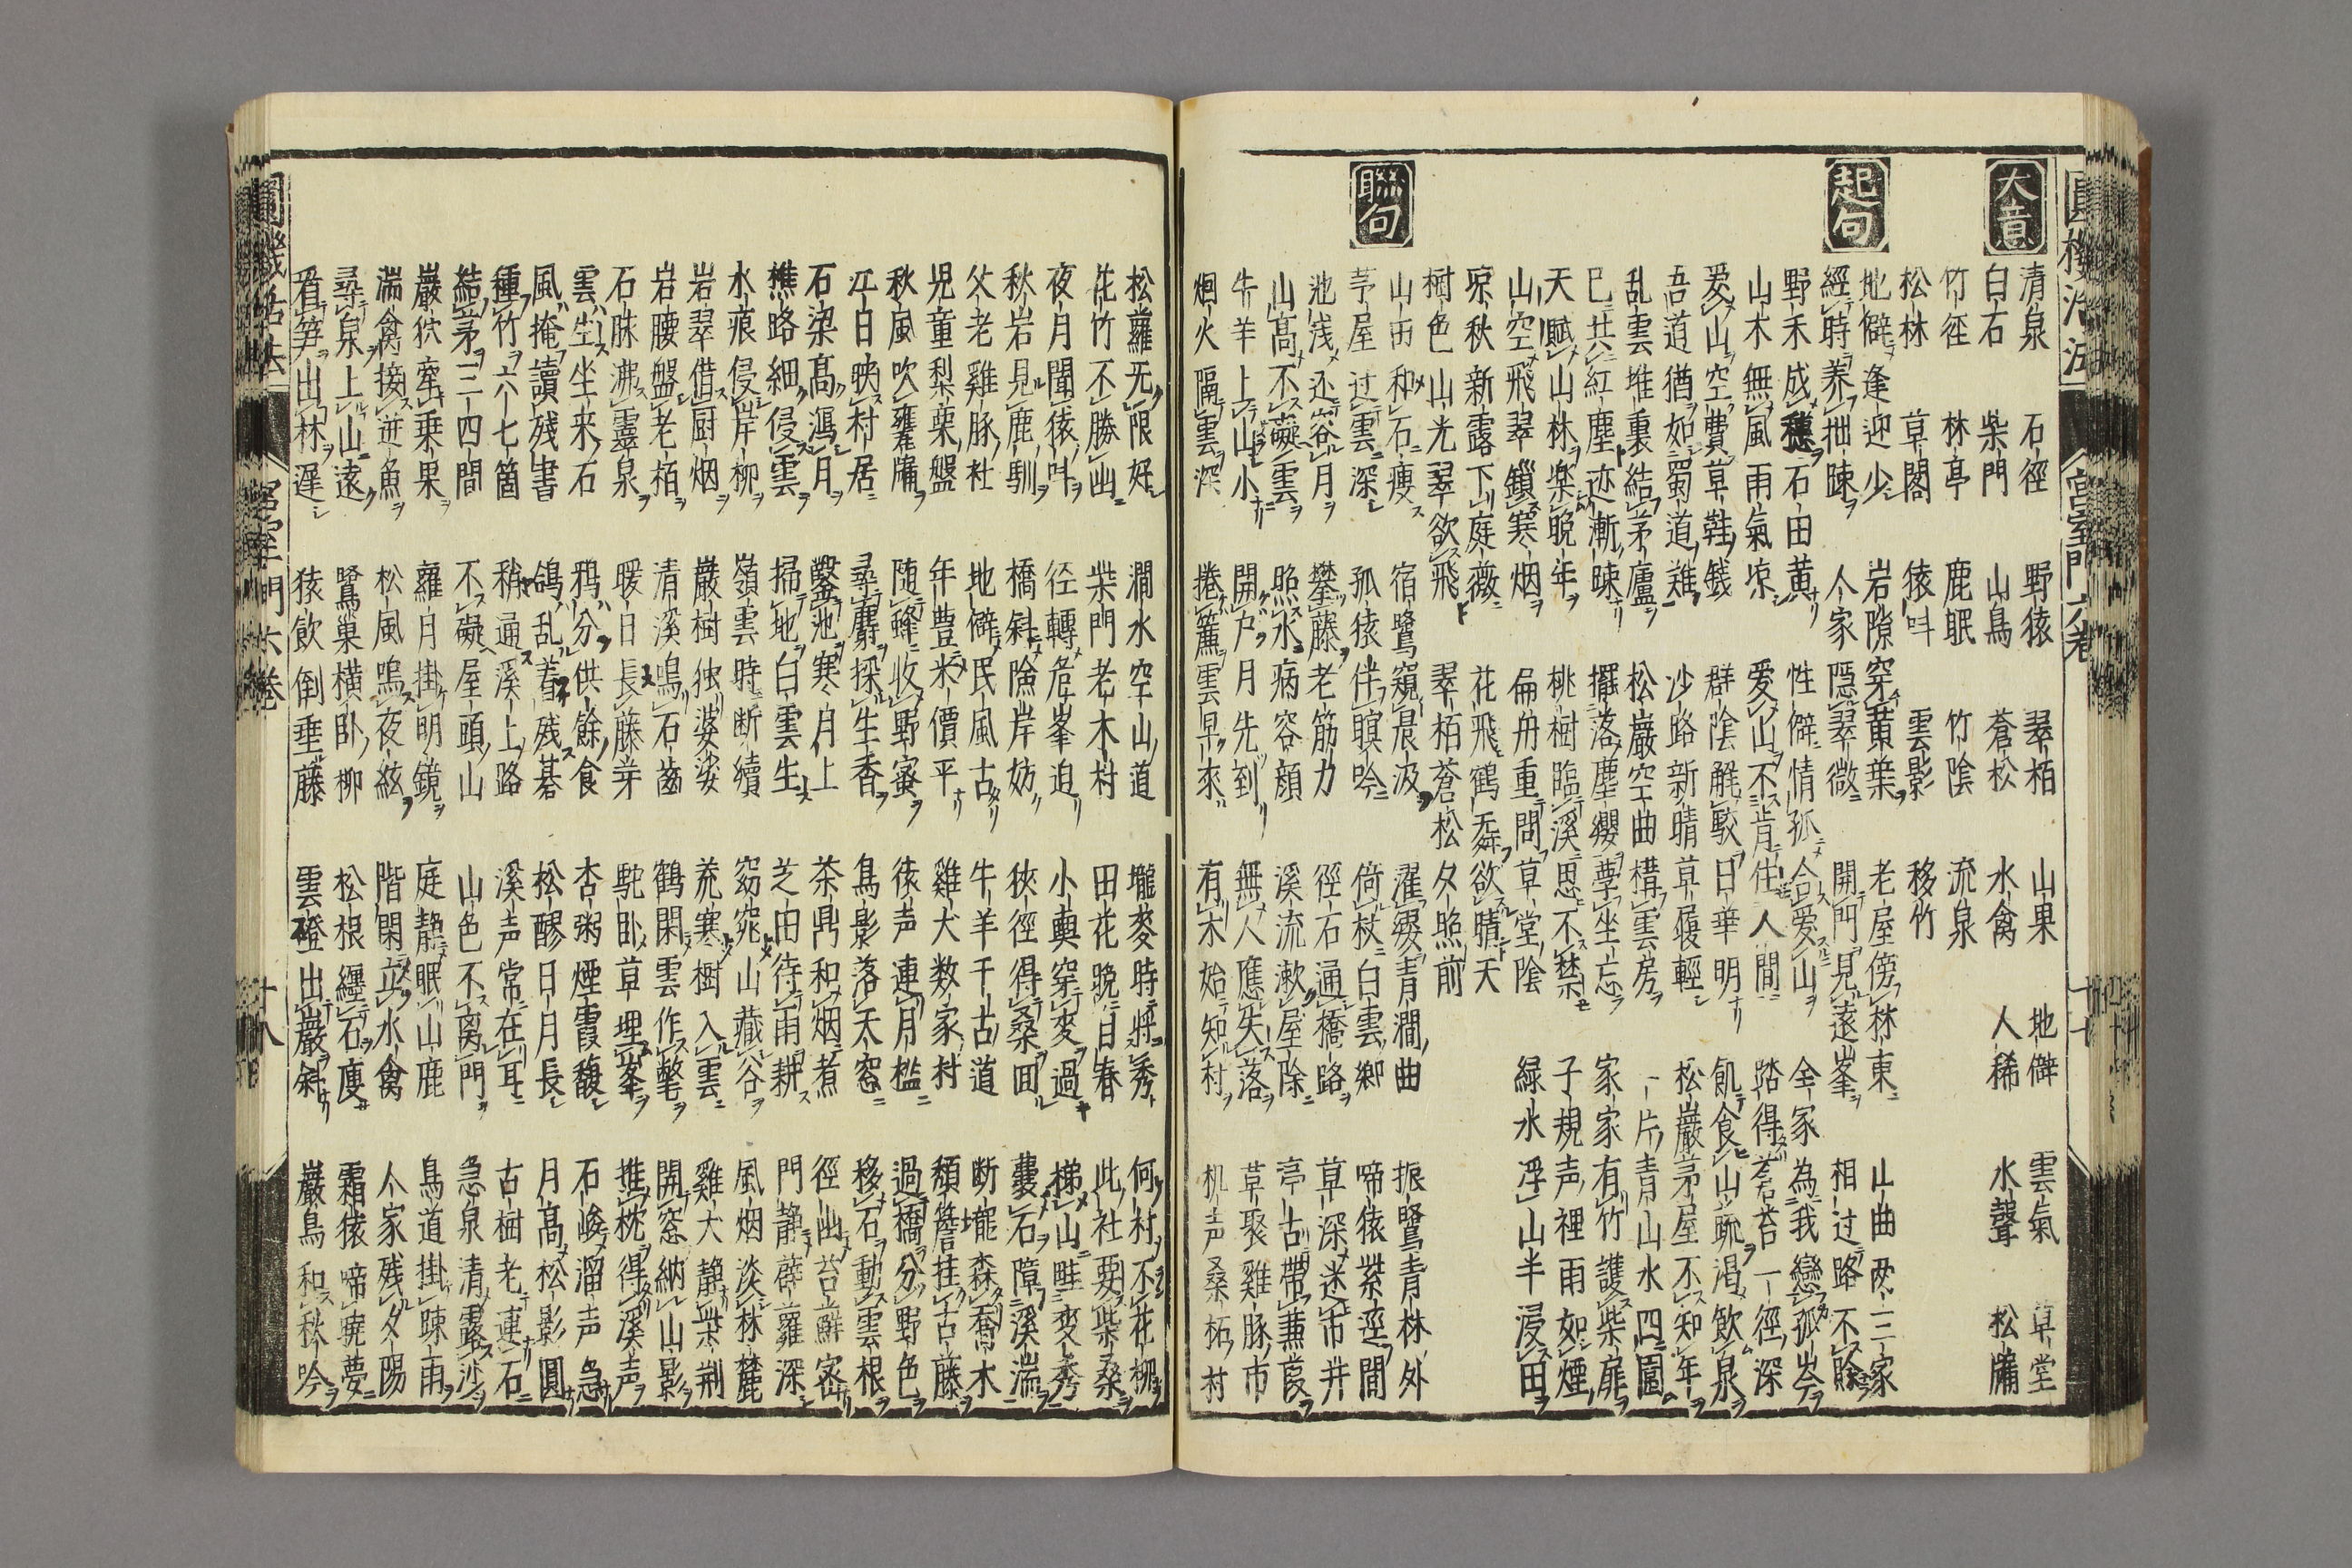 大意
清泉 石徑 野猿 翠栢 山果 地僻 雲氣 草堂
白石 柴門 山鳥 蒼松 水禽 人稀 水聲 松牖
竹径 林亭 鹿眠 竹陰 流泉
松林 草閣 猿叫 雲影 移竹
起句
地僻逢迎少 岩隙穿黄葉 老屋傍林東 山曲両三家
經時養拙踈 人家隠翠微 開門見遠峯 相过路不賖
野禾成穗石田黄 性僻情孤合愛山 全家為我戀孤岑
山木無風雨氣凉 爱山不肯住人間 踏得蒼苔一徑深
爱山空費草鞋錢 群陰解駮日華明 飢食山蔬渴飲泉
吾道猶如蜀道難 沙路新晴草履輕 松巖茅屋不知年
乱雲堆裏結茅廬 松巖空曲構雲房 一片青山水四圍
已共紅塵迹漸疎 擺落塵纓學坐忘 家家有竹護柴扉
天賦山林楽晩年 桃樹臨溪思不禁 子規声裡雨如煙
山空飛翠鎖寒烟 扁舟重問草堂陰 緑水浮山半浸田
凉秋新露下庭薇 花飛鶴舞欲晴天
樹色山光翠欲飛 翠栢蒼松夕照前
聯句
山雨和石痩 宿鷺窺晨汲 濯纓青澗曲 振鷺青林外
芧屋过雲深 孤猿伴暝吟 倚杖白雲郷 啼猿紫逕間
池浅还容月 攀藤老筋力 徑石通橋路 草深迷市井
山髙不礙雲 照水病容顔 溪流漱屋除 亭古帶蒹葭
牛羊上山小 開户月先到 無人應失落 草聚雞豚市
烟火隔雲深 捲簾雲早來 有木始知村 机声桑柘村
圓機活法 宮室門六卷 十七
松蘿无限好 澗水空山道 壠麥時將秀 何村不花柳
花竹不勝幽 柴門老木村 田花晩日春 此社要柴桑
夜月聞猿叫 径轉危峯迫 小輿穿麥過 梯山畦麥秀
秋岩見鹿馴 橋斜險岸妨 狹徑得桑回 蔞石障溪湍
父老雞豚社 地僻民風古 牛羊千古道 断壠森喬木
児童梨栗盤 年豊米價平 雞犬数家村 頽簷拄古藤
秋風吹甕牖 随蜂收野蜜 猿声連月檻 過橋分野色
江日映村居 尋麝探生香 鳥影落天窓 移石動雲根
石梁髙瀉月 鑿池寒月上 茶鼎和烟煮 徑幽苔蘚密
樵路細侵雲 掃地白雲生 芝田待雨耕 門静薜蘿深
水痕侵岸柳 嶺雲時断續 窈窕山藏谷 風烟淡林麓
岩翠借厨烟 巖樹独婆娑 荒寒樹入雲 雞犬静柴荆
岩腰盤老栢 清溪鳴石齒 鶴閑雲作氅 開窓納山影
石脉沸靈泉 暖日長藤芽 駝卧草埋峯 推枕得溪声
雲生坐来石 鴉分供餘食 杏粥煙霞馥 石峻溜声急
風掩讀残書 鴿乱着残碁 松醪日月長 月髙松影圓
種竹六七箇 稍通溪上路 溪声常在耳 古樹老連石
結茅三四間 不礙屋頭山 山色不离門 急泉清露沙
巖狖牽乗果 蘿月掛明鏡 庭静眠山鹿 鳥道掛踈雨
湍禽接逆魚 松風鳴夜絃 階閑立水禽 人家残夕陽
尋泉上山遠 鷺巣横卧柳 松根纒石庾 霜猿啼暁夢
看笋出林遅 猿飲倒垂藤 雲磴出巖斜 巖鳥和秋吟
圓機活法 宮室門六卷 十八